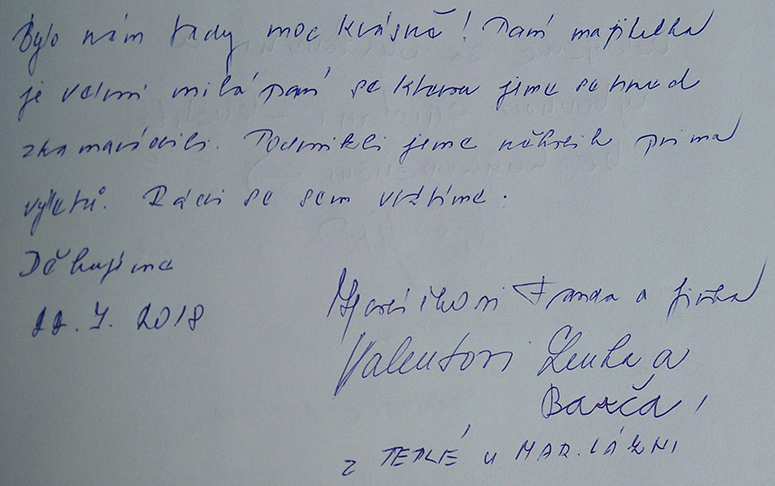 Bylo nám tady moc krásně! Paní majitelka
je velmi milá paní se kterou jsme se hned
zkamarádili. Podnikli jsme několik prima
výletů. Rádi se sem vrátíme.
Děkujeme
22.7.2018
Franda a Jirka
Valentovi Lenka a
Barča,
z TEPLÉ u MAR. LÁZNÍ